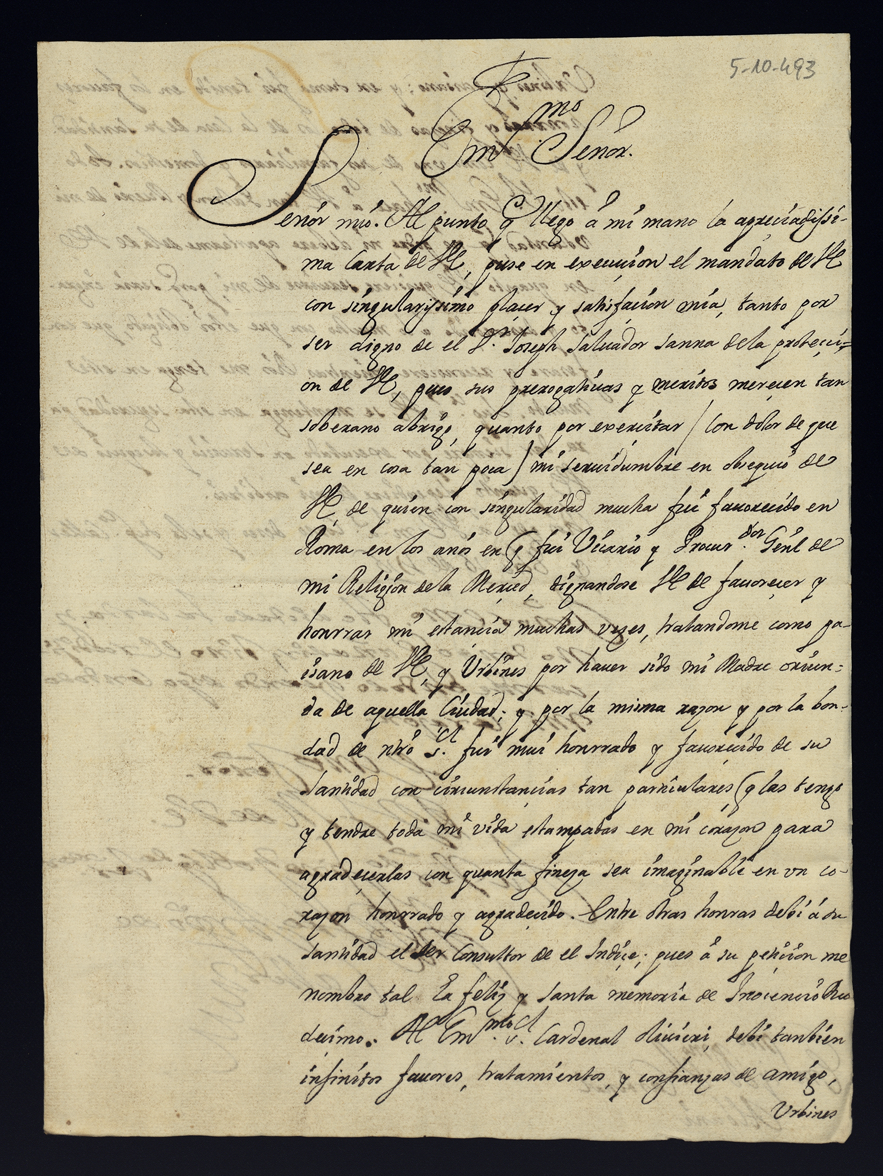 5-10-493
Em.mo Señor.
Señor mio. Al punto q llego à mi mano la apreciadissi-
ma Carta de VE, puse en execucion el mandato de VE
con singularissimo placer y satisfacion mia, tanto por
ser digno de el S.r Joseph Salvador Sanna de la protecci=
on de VE, pues sus prerogativas y meritos merecen tan
soberano abrigo, quanto por exercitar / con dolor de que
sea en cosa tan poca / mi servidumbre en obsequio de
VE, de quien con singularidad mucha fui favorecido en
Roma en los años en q fui Vicario y Procur.dor Gen̄l de
mi Religion de la Merced, dignandose VE de favorecer y
honrrar mi estancia muchas vezes, tratandome como pa-
isano de VE, y Urbines por haver sido mi Madre oriun-
da de aquella Ciudad; y por la misma razon y por la bon-
dad de ntro S. fui mui honrrado y favorecido de su
Santidad con circunstancias tan particulares (q las tengo
y tendre toda mi vida estampadas en mi corazon para
agradecerlas con quanta fineza sea imaginable en vn co-
razon honrrado y agradecido. Entre otras honras debi à su
Santidad el ser Consultor de el Indice; pues à su peticion me
nombro tal la feliz y santa memoria de Inocencio
decimo. Al Em.mo Cardenal Olivieri, debi tanbien
infinitos favores, tratamientos, y confianzas de amigo,
Urbines